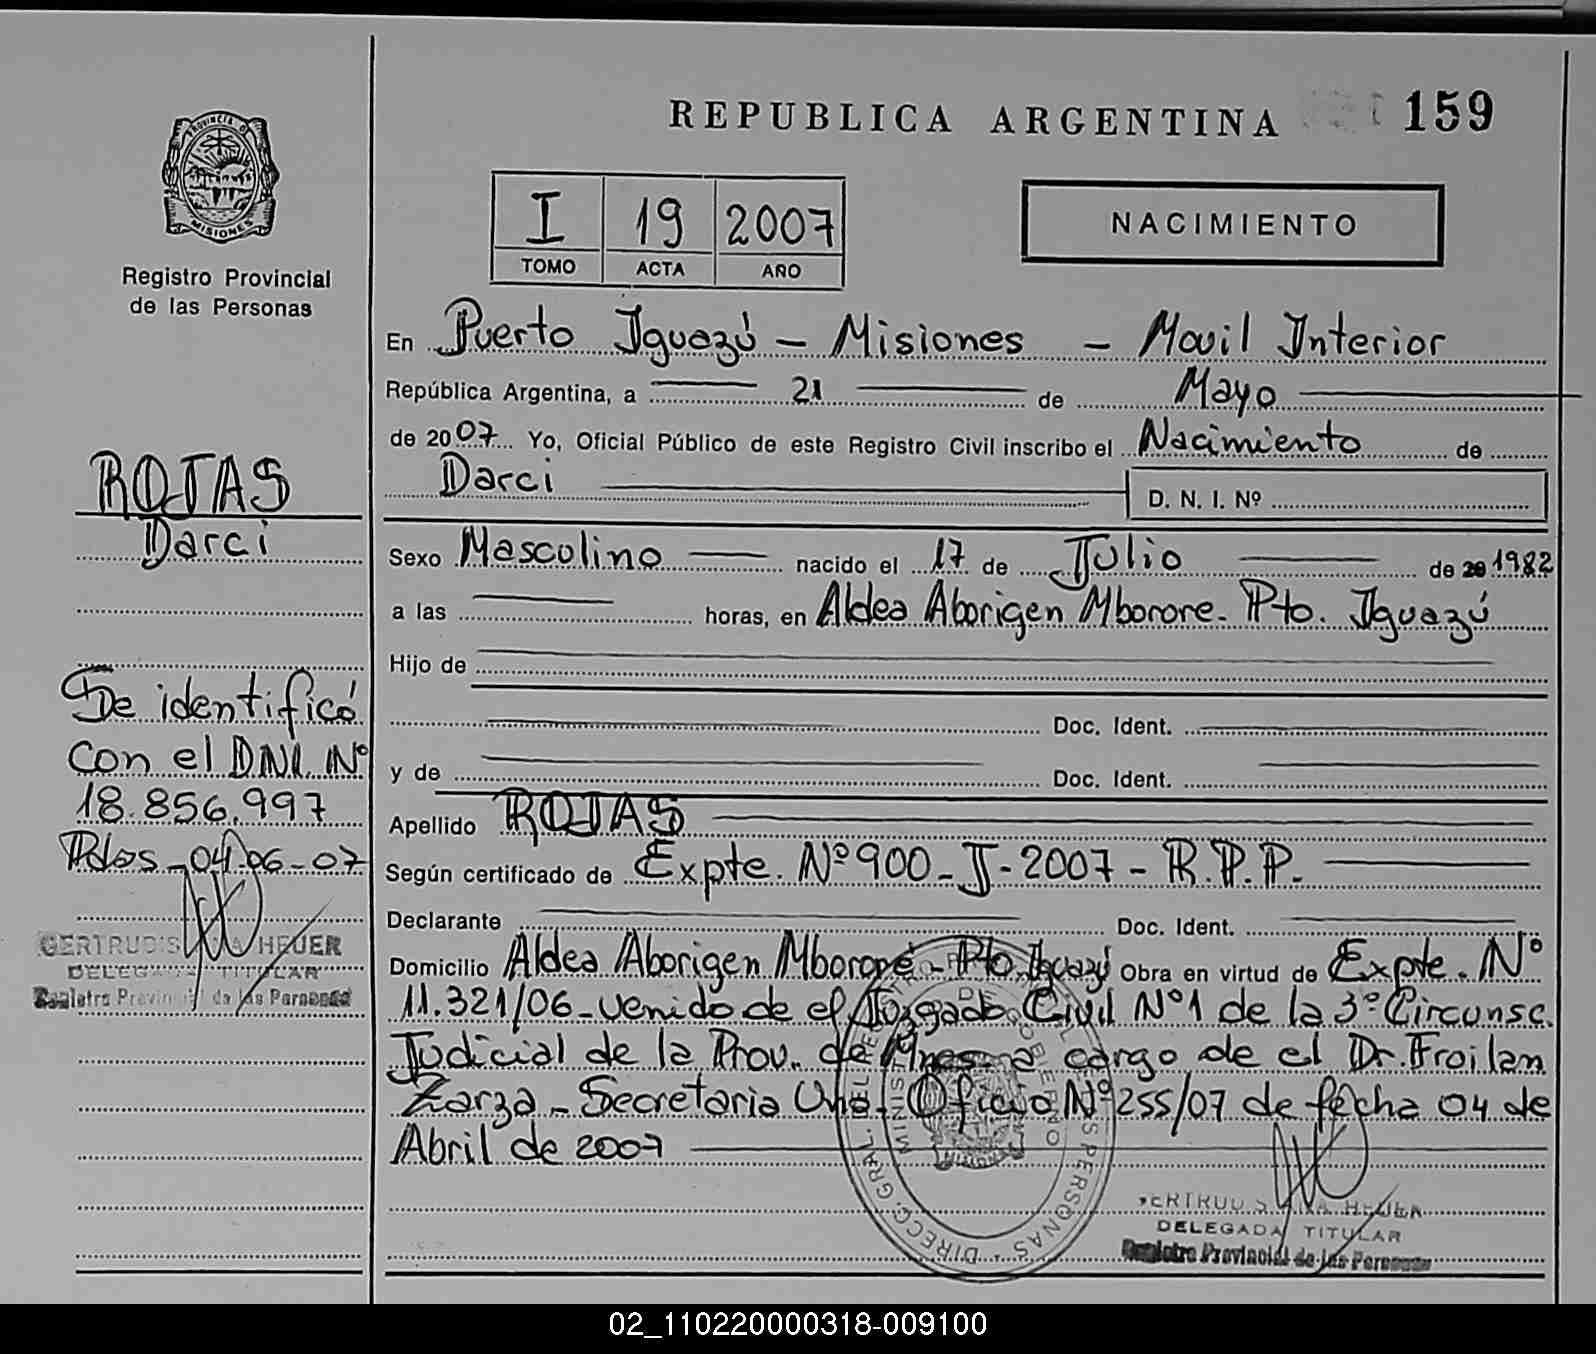 REPUBLICA ARGENTINA 159
PROVINCIA DE
MISIONES
Registro Provincial
de las Personas
I 19 2007
TOMO ACTA AÑO
NACIMIENTO
En Puerto Iguazú - Misiones - Movil Interior
República Argentina, a 21 de Mayo
de 2007 Yo, Oficial Público de este Registro Civil inscribo el Nacimiento de
Darci D. N. I. Nº
Sexo Masculino nacido el 17 de Julio de 20 1982
a las horas, en Aldea Aborigen Mborore. Pto. Iguazú
Hijo de
Doc. Ident.
y de Doc. Ident.
Apellido ROJAS
Según certificado de Expte. Nº 900-J-2007-R.P.P.
Declarante Doc. Ident.
Domicilio Aldea Aborigen Mbororé - Pto. Iguazú Obra en virtud de Expte. Nº
11.321/06 - venido de el Juzgado Civil Nº 1 de la 3º Circunsc.
Judicial de la Prov. de Mnes. a cargo de el Dr. Froilan
Zarza - Secretaria Una. Oficio Nº 255/07 de fecha 04 de
Abril de 2007
ROJAS
Darci
Se identificó
con el DNI. Nº
18.856.997
Pdas - 04-06-07
GERTRUDIS ANA HEUER
DELEGADA TITULAR
Registro Provincial de las Personas
DIRECC. GRAL. DEL REGISTRO PROVINCIAL DE LAS PERSONAS
MINISTERIO DE GOBIERNO
GERTRUDIS ANA HEUER
DELEGADA TITULAR
Registro Provincial de las Personas
02_110220000318-009100